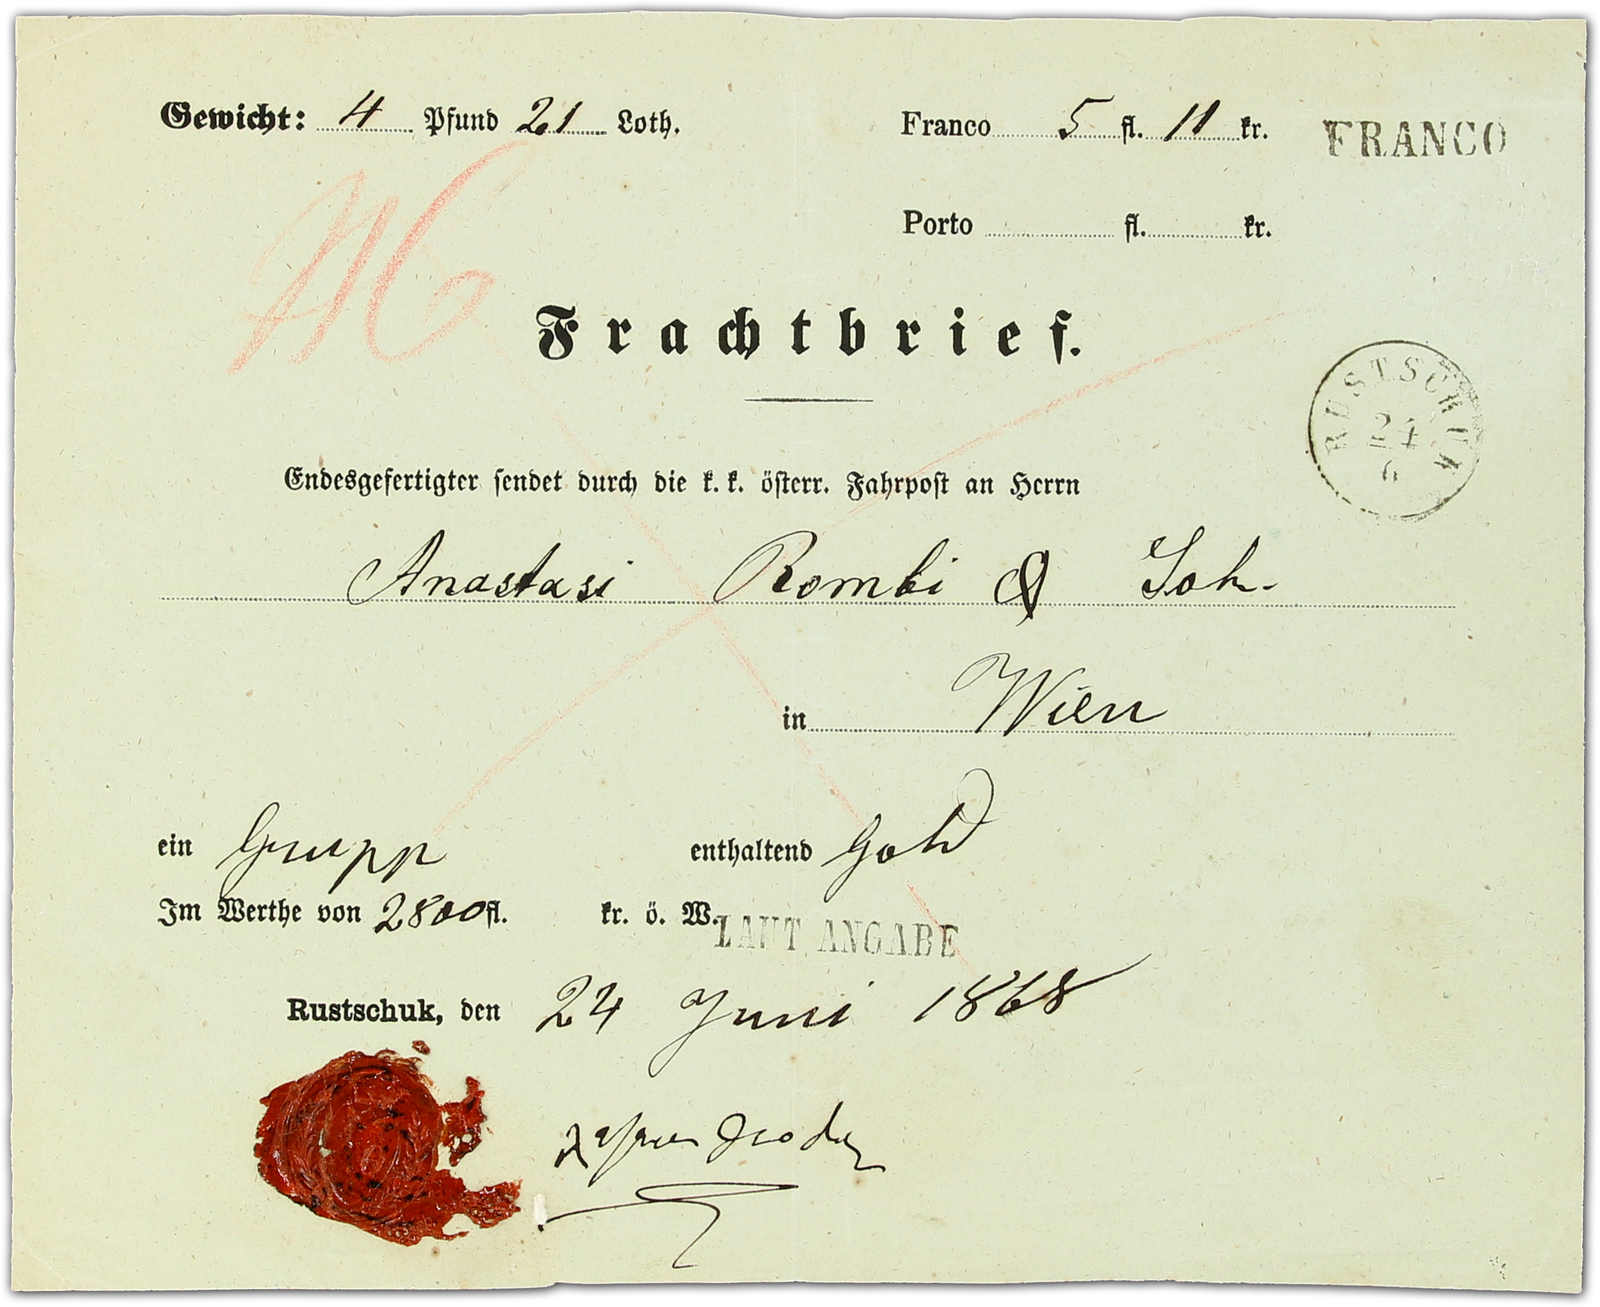 Gewicht: 4 Pfund 21 Loth. Franco 5 fl. 11 kr. FRANCO
Porto fl. kr.
Frachtbrief.
RUSTSCHUK
24
6
Endesgefertigter sendet durch die k. k. österr. Fahrpost an Herrn
Anastasi Rombi & Soh.
in Wien
ein Grupp enthaltend Gold
Im Werthe von 2800 fl. kr. ö. W.
LAUT ANGABE
Rustschuk, den 24 Juni 1868